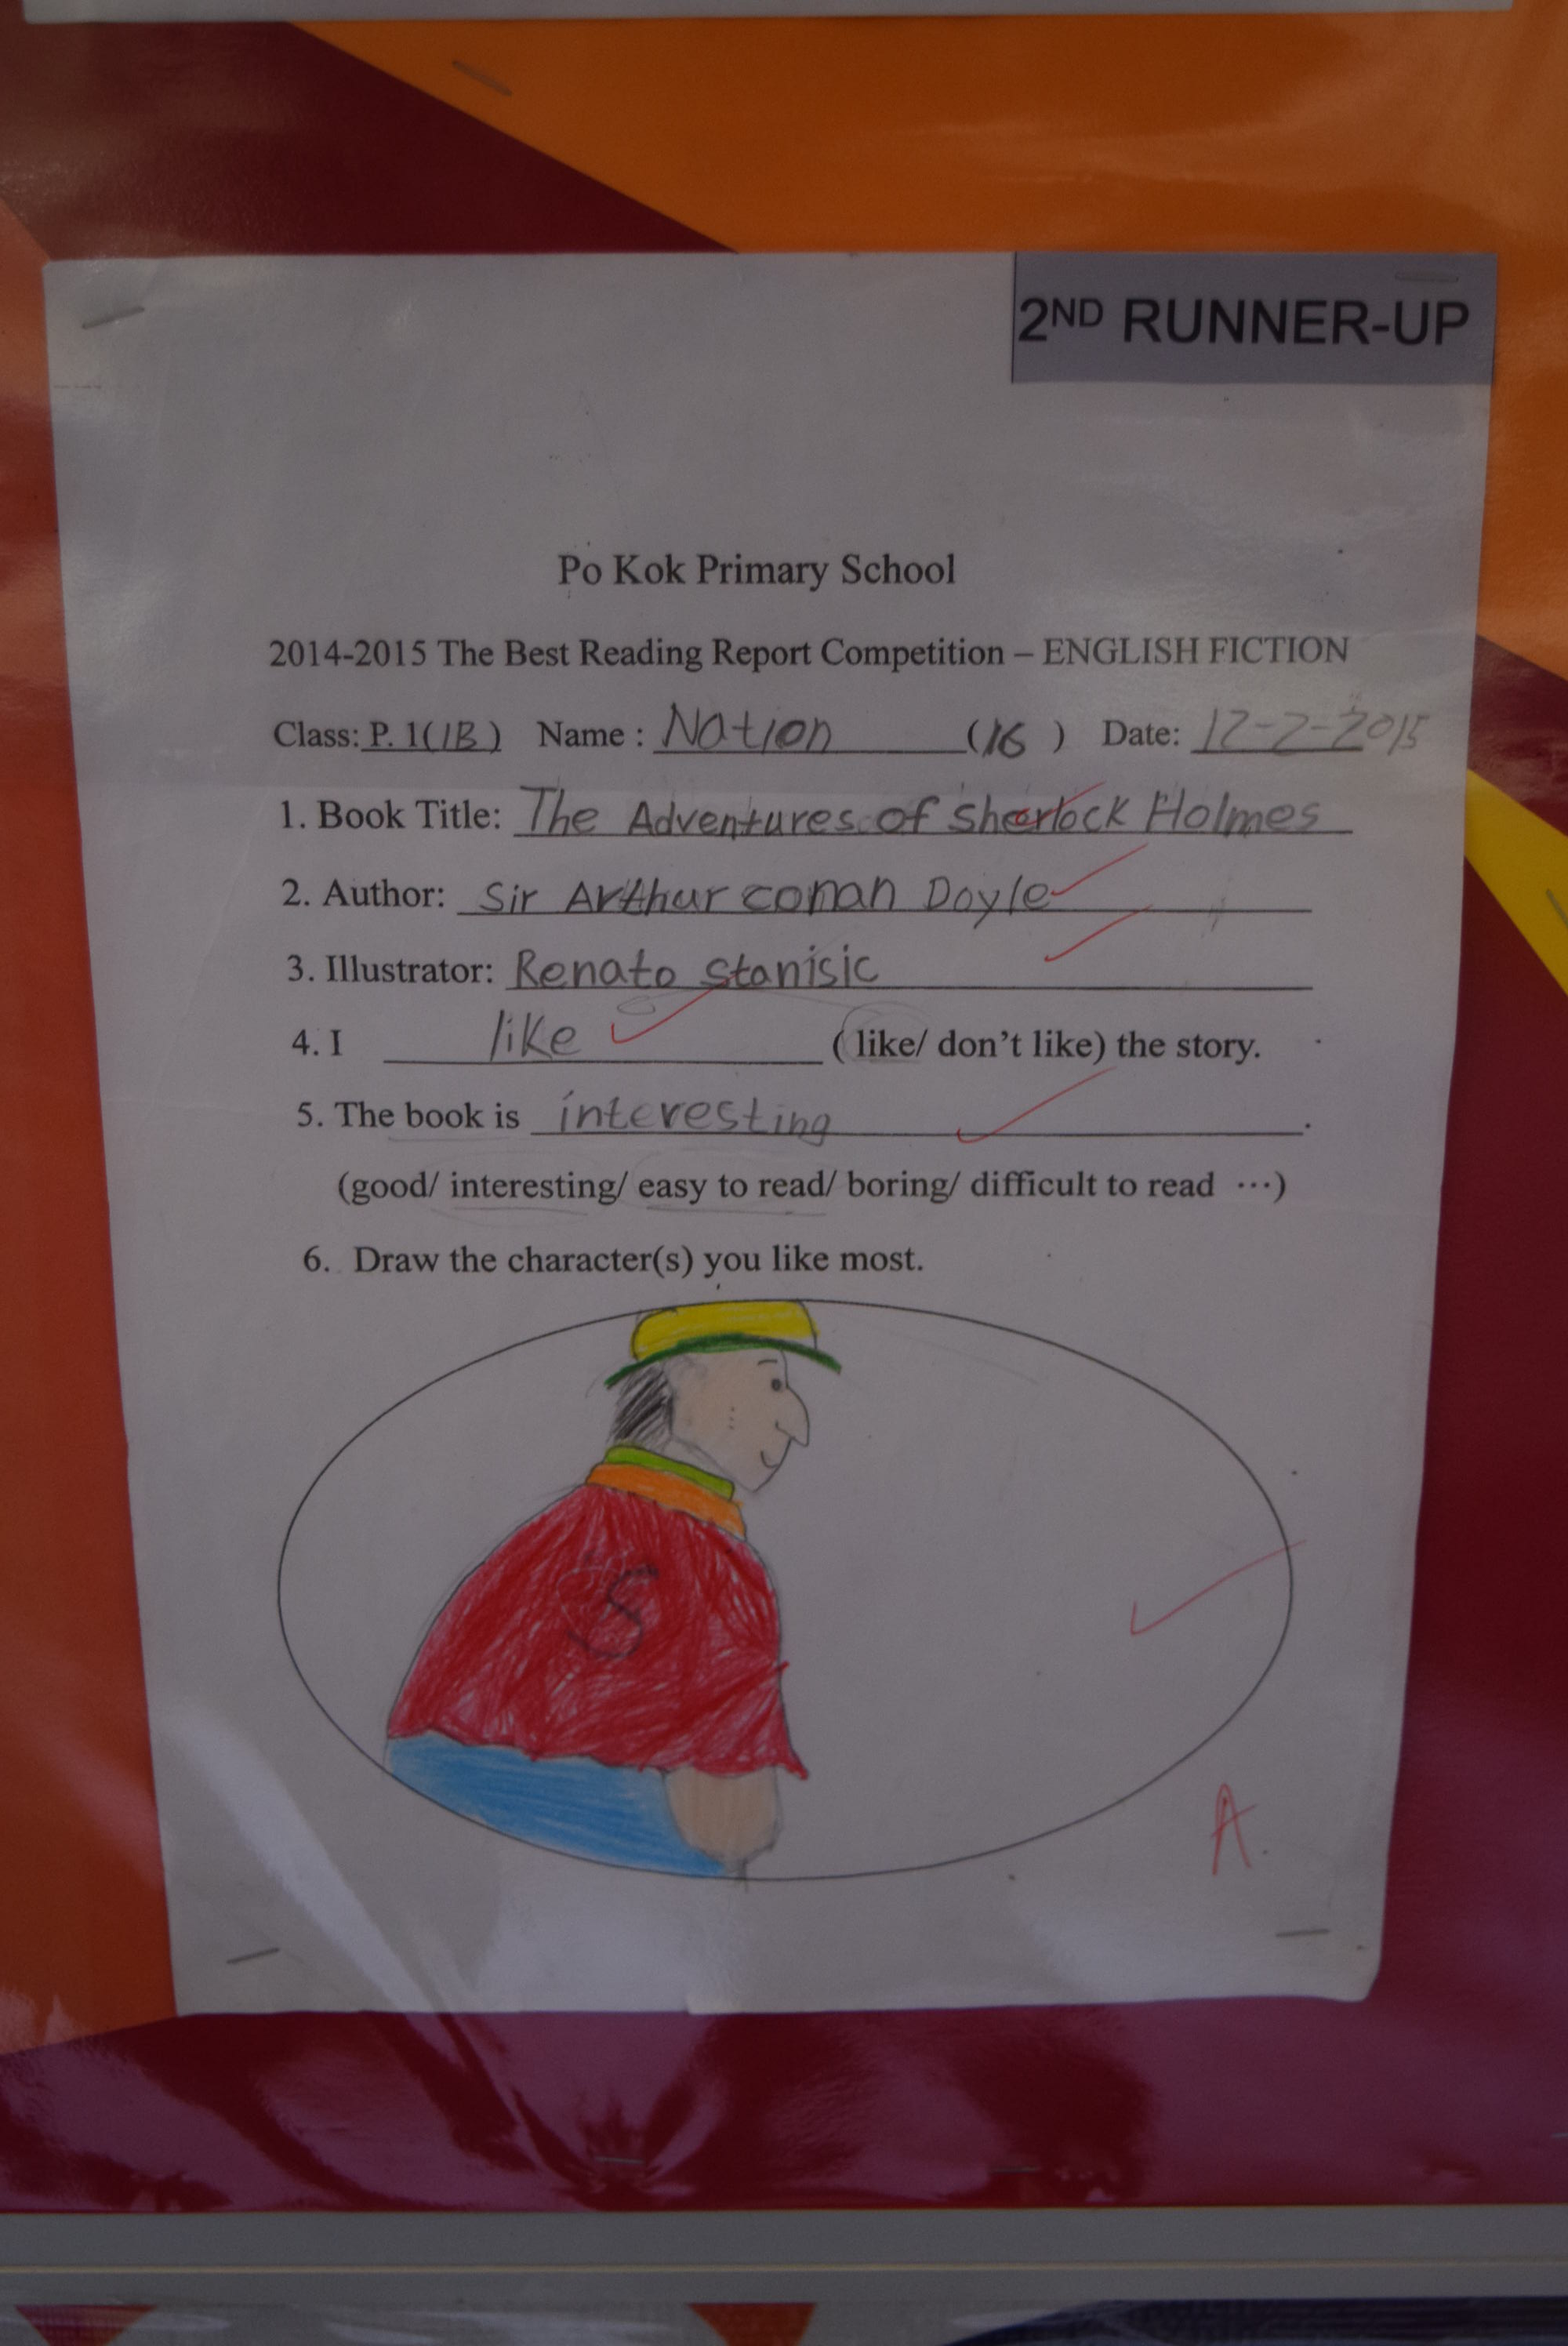 2ND RUNNER-UP
Po Kok Primary School
2014-2015 The Best Reading Report Competition – ENGLISH FICTION
Class: P. 1(1B) Name : Nation (16 ) Date: 12-2-2015
1. Book Title: The Adventures of Sherlock Holmes
2. Author: Sir Arthur conan Doyle
3. Illustrator: Renato Stanisic
4. I like ( like/ don't like) the story.
5. The book is interesting .
(good/ interesting/ easy to read/ boring/ difficult to read ⋯)
6. Draw the character(s) you like most.
S
A.